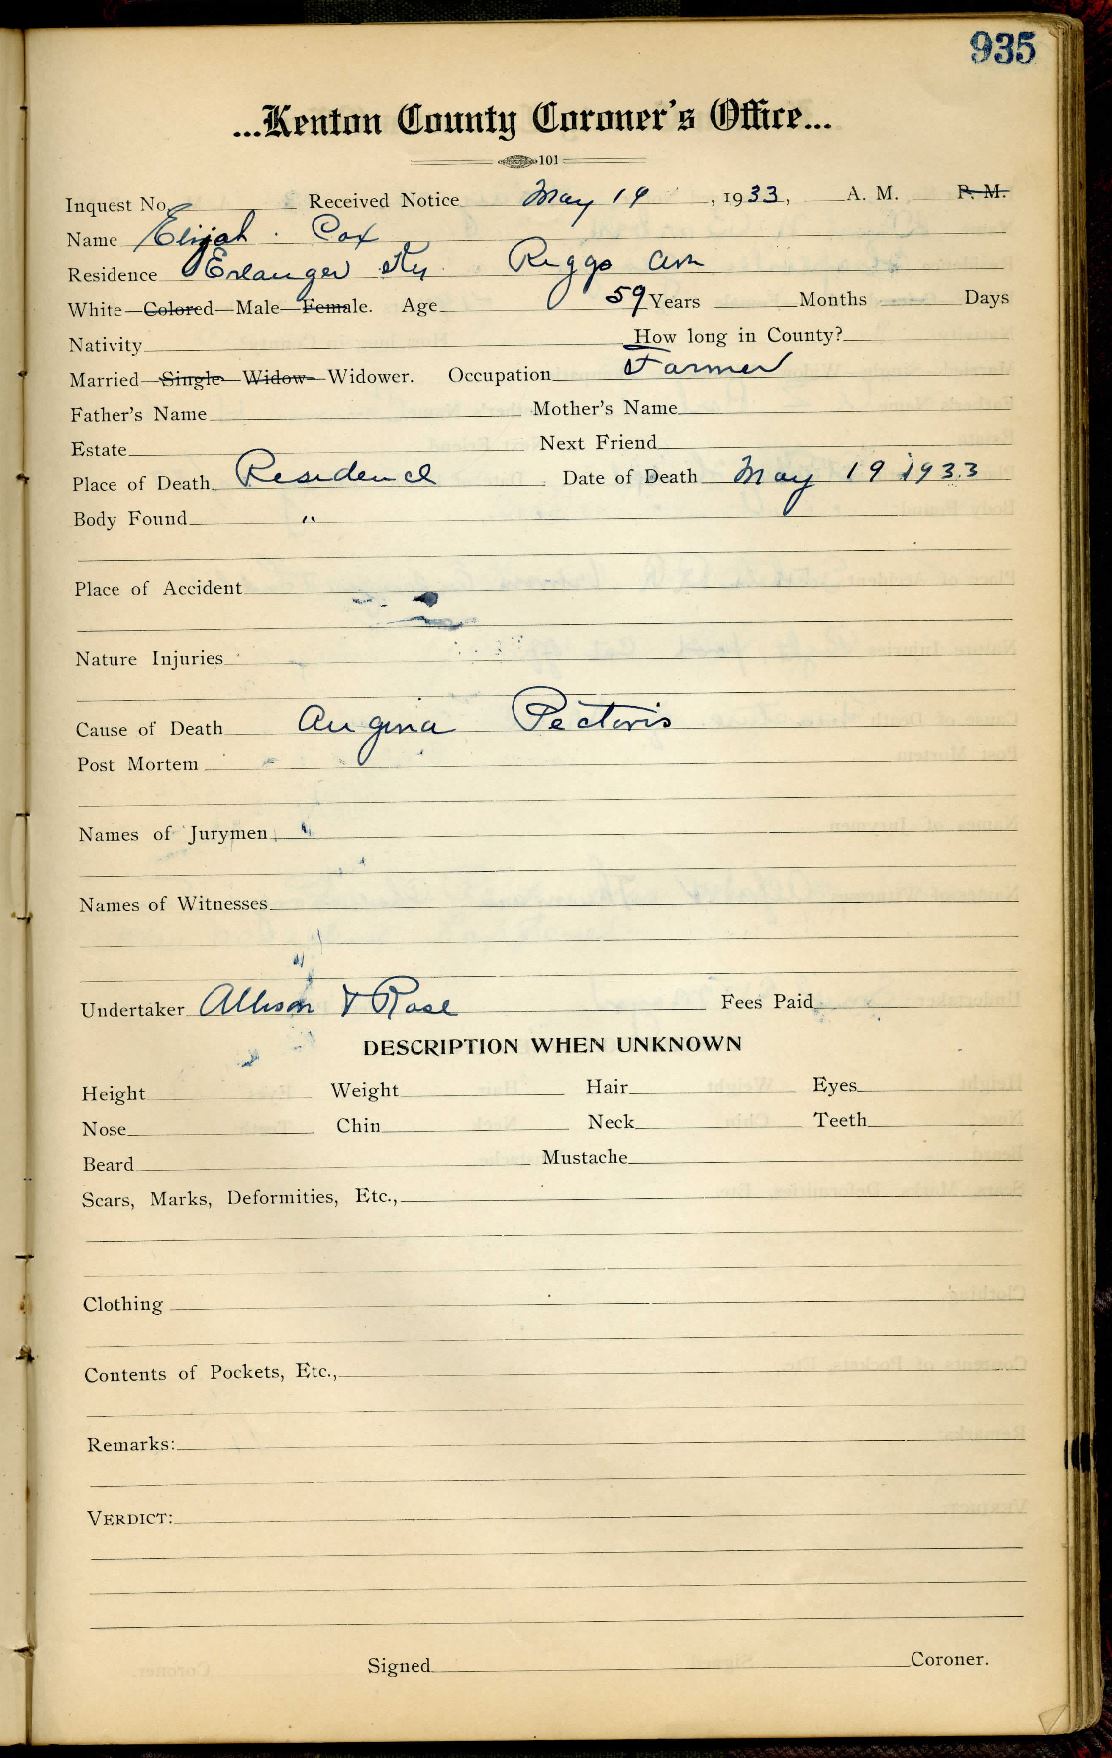 935
...Kenton County Coroner's Office...
101
Inquest No. Received Notice May 19, 1933, A. M. P. M.
Name Elijah Cox
Residence Erlanger Ky Riggs
White—Colored—Male—Female. Age 59 Years Months Days
Nativity How long in County?
Married—Single—Widow—Widower. Occupation Farmer
Father's Name Mother's Name
Estate Next Friend
Place of Death Residence Date of Death May 19 1933
Body Found "
Place of Accident
Nature Injuries
Cause of Death Angina Pectoris
Post Mortem
Names of Jurymen
Names of Witnesses
Undertaker Allison & Rose Fees Paid
DESCRIPTION WHEN UNKNOWN
Height Weight Hair Eyes
Nose Chin Neck Teeth
Beard Mustache
Scars, Marks, Deformities, Etc.,
Clothing
Contents of Pockets, Etc.,
Remarks:
VERDICT:
Signed Coroner.